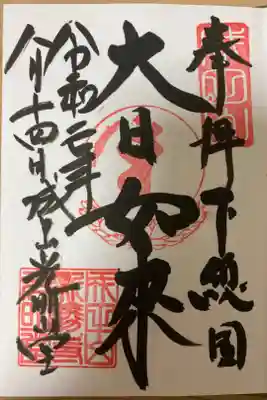 奉拝 下総国
大日如來
令和二年
八月十四日 成田山光明堂